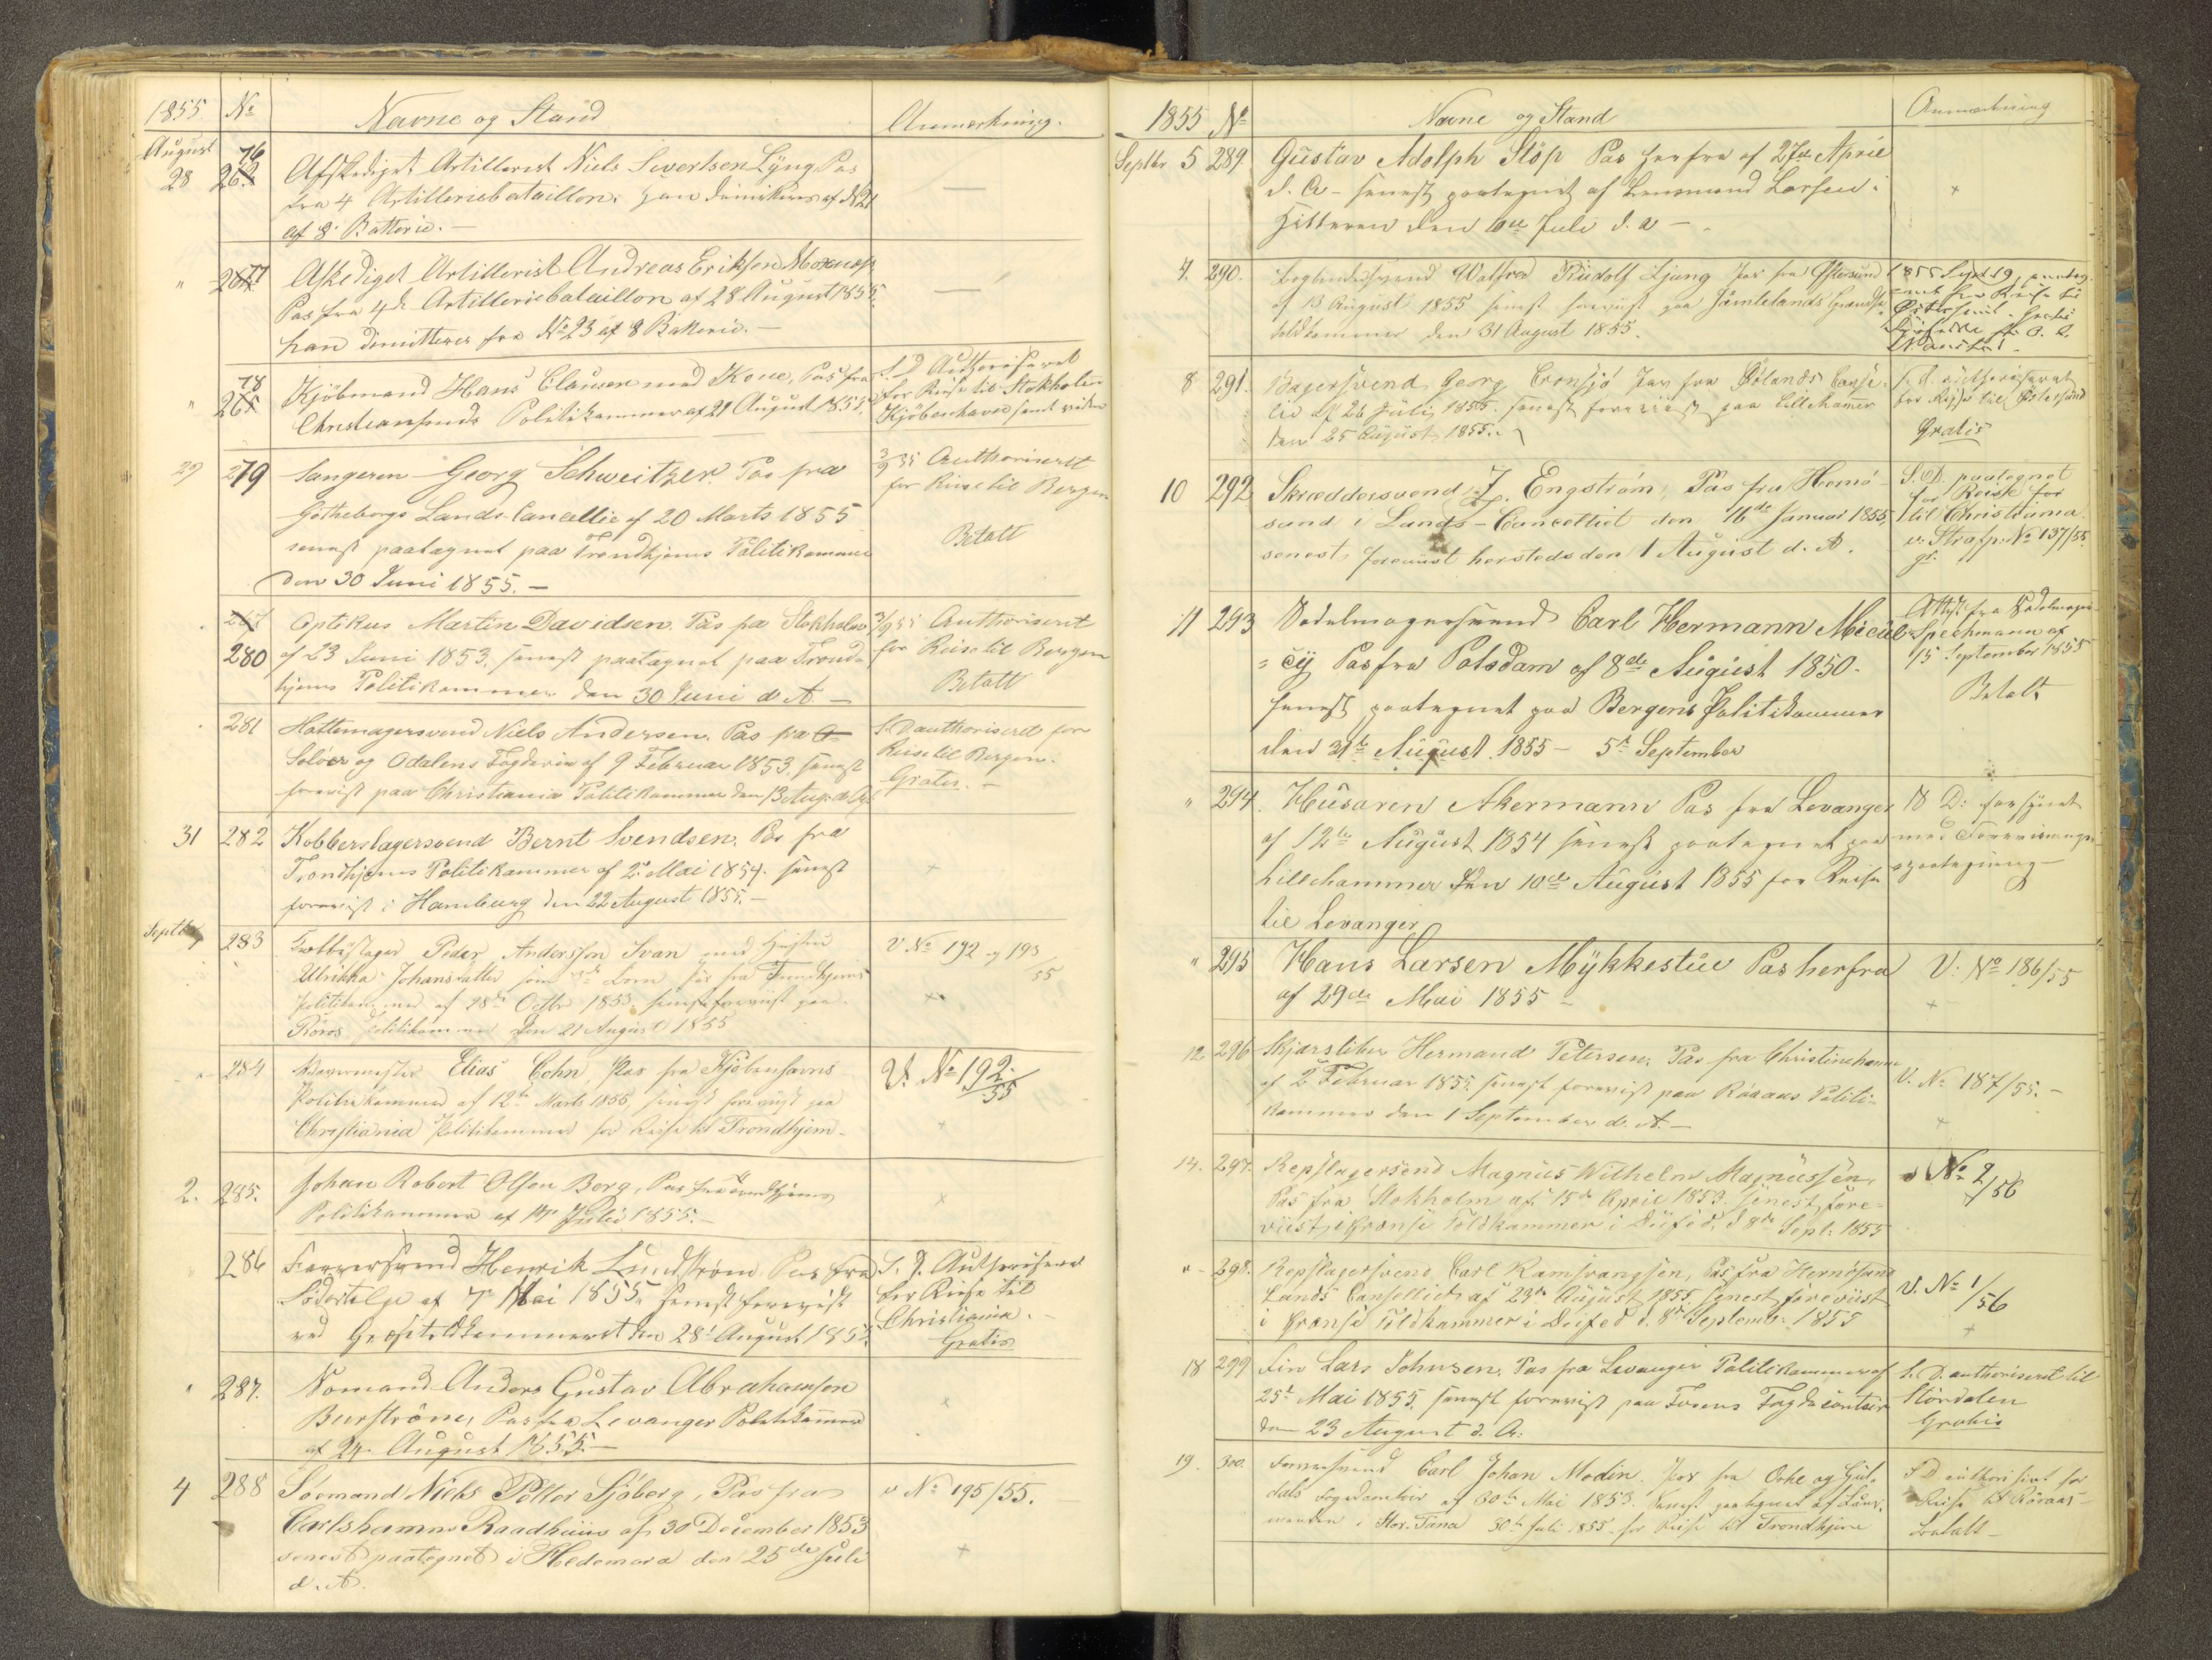 1855 No Navne og Stand Anmærkning.
August 28 76 Afskediget Artillerist Niels Sivertsen Lyng Pas
fra 4 Artilleriebataillon; han dimitteres af No 21
af 8 Batterie. —
" 77 Afskediget Artillerist Andreas Eriksen Moxness
Pas fra 4de Artilleriebataillon af 28 August 1855.
han dimitteres fra No 23 af 8 Batterie. —
" 78 265 Kjöbmand Hans Clausen med Kone, Pas fra
Christiansunds Politikammer af 21 August 1855.
S. D. Authoriseret
for Reise til Stokholm
Kjöbenhavn samt videre
29 279 Sangeren Georg Schweitzer. Pas fra
Götheborgs Lands-Cancellie af 20 Marts 1855
senest paategnet paa Trondhjems Politikammer
den 30 Juni 1855. —
3/9 55 Authoriseret
for Reise til Bergen
Betalt
267 280 Optikus Martin Davidsen. Pas fra Stokholm
af 23 Juni 1853. senest paategnet paa Trond-
hjems Politikammer den 30 Juni d. A. —
3/9 55 Authoriseret
for Reise til Bergen
Betalt
281 Hattemagersvend Niels Andersen. Pas fra
Solöer og Odalens Fogderie af 9 Februar 1853, senest
forevist paa Christiania Politikammer den 13 Aug. d. A.
S. D. authoriseret for
Reise til Bergen.
Gratis. —
31 282 Kobberslagersvend Bernt Svendsen. Pas fra
Trondhjems Politikammer af 2. Mai 1854. senest
forevist i Hamburg den 22 August 1855. —
+
Septbr 1 283 Peder Andersson Svan med Hustru
Ulrikka Johansdatter samt Born Pas fra Trondhjems
Politikammer af 28de Octbr 1853 senest foreviist paa
Röros Politikammer den 21 August 1855
V. No 192 og 193
/55
+
" 284 Elias Cohn, Pas fra Kjöbenhavns
Politiekammer af 12te Marts 1855, senest foreviist paa
Christiania Politikammer for Reise til Trondhjem —
V. No 192/55
+
2. 285. Johan Robert Olsen Berg, Pas fra Trondhjems
Politikammer af Juli 1855. —
+
286 Farversvend Henrik Lundström Pas fra
Södertelje af 7de Mai 1855. senest forevist
ved Grændsetoldkammeret den 28 August 1855.
S. D. Authoriseret
for Reise til
Christiania. —
Gratis
" 287. Nomand Anders Gustav Abrahamson
Burström, Pas fra Levanger Politikammer
af 24. August 1855. —
+
4 288 Sömand Niels Petter Sjöberg, Pas fra
Carlshamns Raadhuus af 30 December 1853
senest paategnet i Hedemora den 25de Juli
d. A.
v No 195/55.
+
1855 No Navne og Stand Anmærkning
Septbr 5 289. Gustav Adolph Stöp Pas herfra af 27de April
d. A — senest paategnet af Lensmand Larsen i
Hitteren den Juli d. A —
+
7. 290. Bogbindersvend Walfred Rudolf Ljung Pas fra Östersund
af 13 August 1855 senest foreviist paa Jämtelands Grændse-
toldkammer den 31 August 1855.
1855 Sept 19, paateg-
net for Reise til
Östersund.
8 291. Bagersvend Georg Cronsjö Pas fra Ölands Canse-
lie af 26 Juli 1855. senest foreviist paa Lillehammer
den 25 August 1855.
S. D. authoriseret
for Rejse til Östersund
Gratis
10 292 Skræddersvend J. Engström, Pas fra Hernö-
sand i Lands-Cancelliet den 16de Januar 1855,
senest foreviist hersteds den 1 August d. A.
S. D. paategnet
for Reise for
til Christiania.
v. Strafp. No 137/55.
gr.
11 293 Sadelmagersvend Carl Hermann Miciel-
cij Pas fra Potsdam af 8de August 1850.
senest paategnet paa Bergens Politikammer
den 31te August 1855 — 5te September
Attest fra Sadelmager
Speckmann af
15 September 1855
Betalt
" 294. Husaren Akermann Pas fra Levanger
af 12te August 1854 senest paategnet paa
Lillehammer den 10de August 1855 for Reise
til Levanger
18 D. forsynet
med Forevisnings-
paategning —
" 295 Hans Larsen Mykkestue Pas herfra
af 29de Mai 1855 —
V: No 186/55
+
12. 296 Skjærsliber Hermand Petersen. Pas fra Christinehavn
af 2 Februar 1855. senest forevist paa Röraas Politi-
kammer den 1 September d. A. —
V. No 187/55. —
+
14. 297. Repslagersvend Magnus Wilhelm Magnussen,
Pas fra Stokholm af 15de April 1853 senest fore-
viist i Grænse Toldkammer i Dufed. d 8de Sept. 1855
v No 2/56
" 298. Repslagersvend Carl Ramsvangsen, Pas fra Hernösand
Lands Canselliet af 23de August 1855, senest foreviist
i Grænse Toldkammer i Dufed d. 8de Septemb: 1855
V. No 1/56
+
18 299 Fin Lars Johnsen, Pas fra Levanger Politikammer af
25te Mai 1855. senest forevist paa Fosens Fogdecontoir
den 23 August d. A.
S. D. authoriseret til
Stördalen
Gratis
19. 300. Farversvend Carl Johan Modin. Pas fra Orke og Gul-
dals Fogdcontoir af 30te Mai 1853. senest paategnet af Læns-
manden i Stor-Tuna 30te Juli 1855 for Reise til Trondhjem
S D authoriseret for
Reise til Röraas —
betalt —